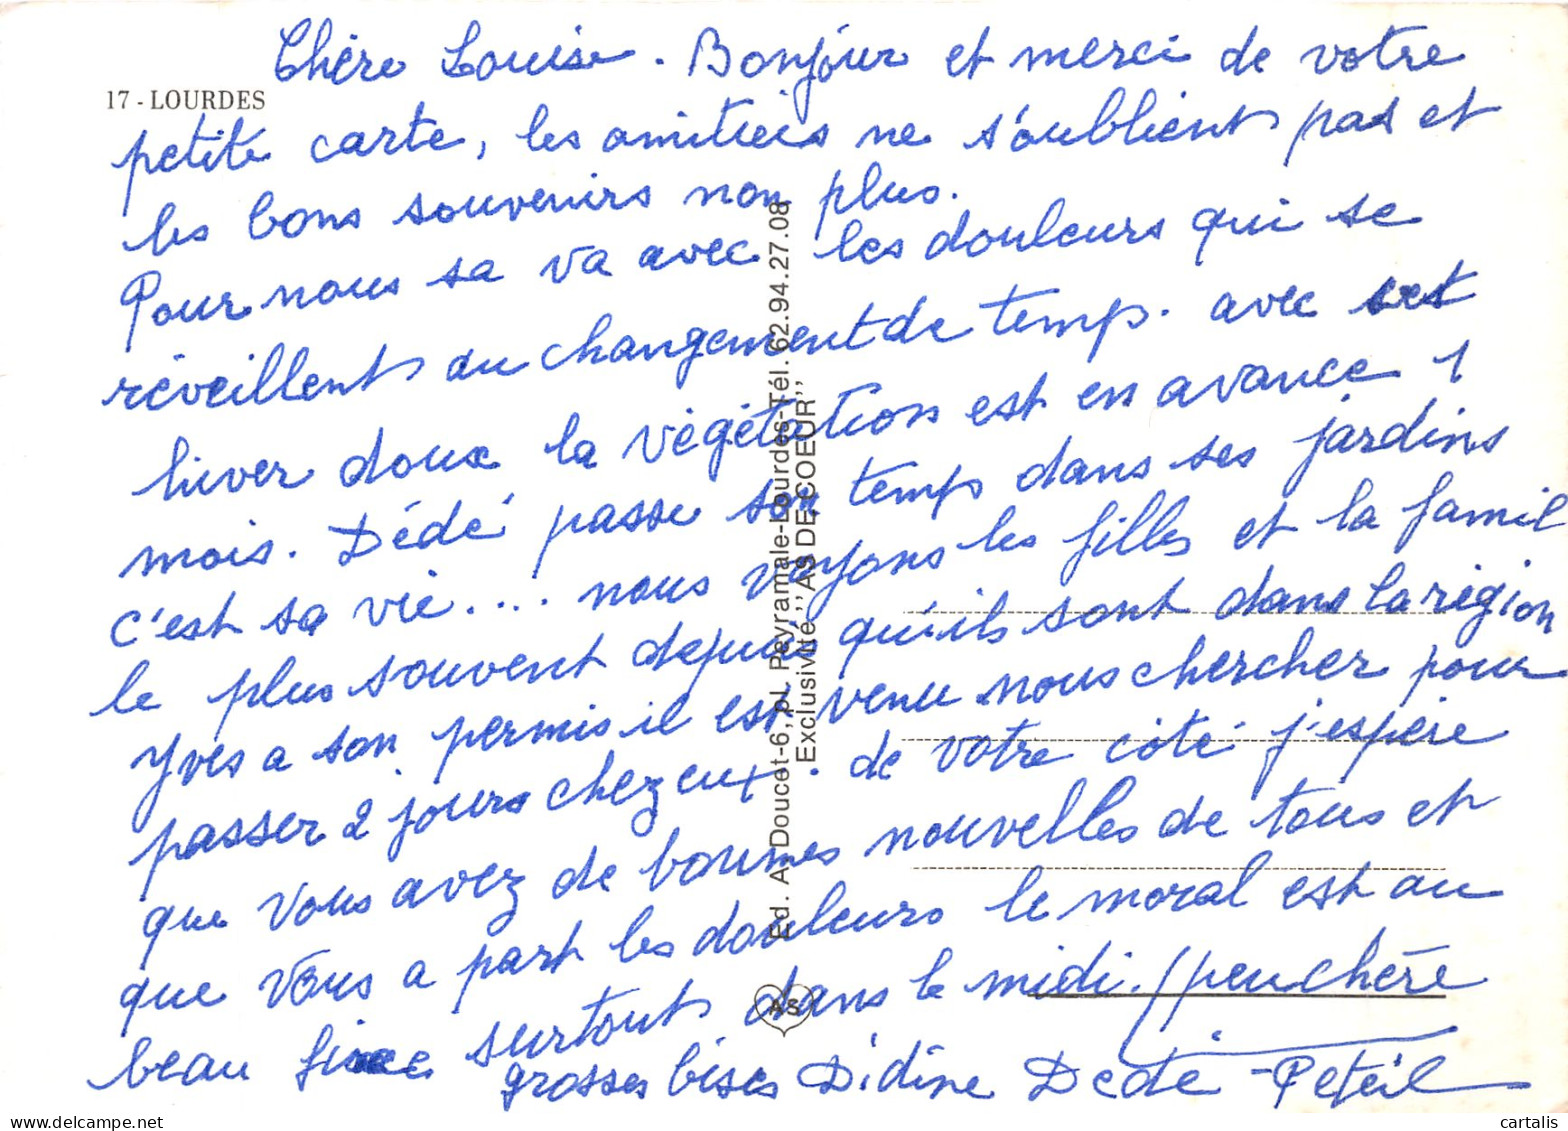 Chère Louise. Bonjour et merci de votre
17 - LOURDES
petite carte, les amitiés ne s'oublient pas et
les bons souvenirs non plus.
Pour nous sa va avec les douleurs qui se
réveillent au changement de temp. avec cet
hiver doux la végétation est en avance 1
mois. Dédé passe son temps dans ses jardins
c'est sa vie.... nous voyons les filles et la famil
le plus souvent depuis qu'ils sont dans la région
Yves a son permis il est venu nous chercher pour
passer 2 jours chez eux. de votre côté j'espère
que vous avez de bonnes nouvelles de tous et
que vous a part les douleurs le moral est au
beau fixe surtout dans le midi. (peuchère
grosses bises Didine Dedé - Peteil
Ed. A. Doucet-6, pl. Peyramale-Lourdes-Tél. 62.94.27.08
Exclusivité ,,AS DE COEUR''
AS
cartalis